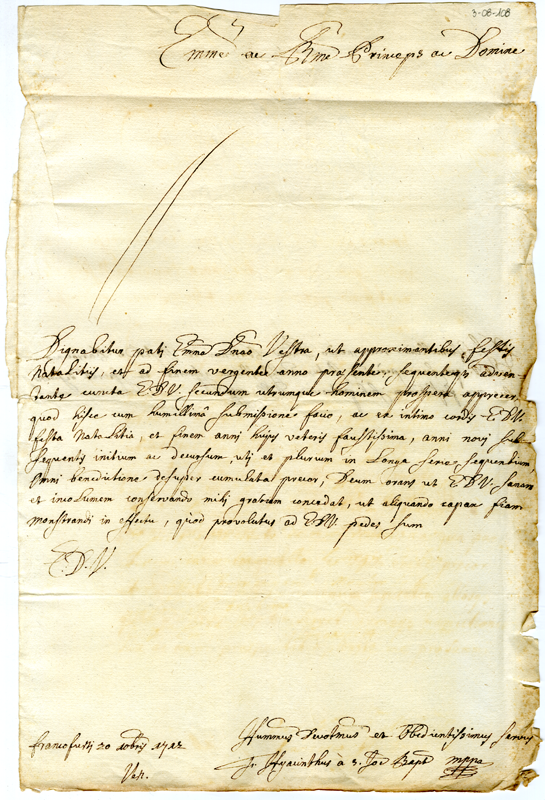 3-08-108
Emme ac Rme Princeps ac Domine
Dignabitur pati Emna Dnao Vestra, ut approximantibus festis
Natalitiis, et ad finem vergente anno praesente, sequenteqz adven-
tante cuncta E D V. secundum utrumque hominem prospera apprecer,
quod hisce cum humillima submissione facio, ac ex intimo cordis E. D. V.
festa Natalitia, et finem anni hujus veteris faustissima, anni novi sub-
sequentis initium ac decursum, uti et plurium in longa serie sequentium
omni benedictione desuper cumulata precor, Deum orans ut E D V. sanam
et incolumem conservando mihi gratiam concedat, ut aliquando capax fiam
monstrandi in effectu, quod provolutus ad E D V. pedes sum
E. D. V.
Francofurti 20 Xbris 1712
Hummus Devotmus et Obedientissimus servus
Fr. Hyacinthus à S. Joe Bapt mppa